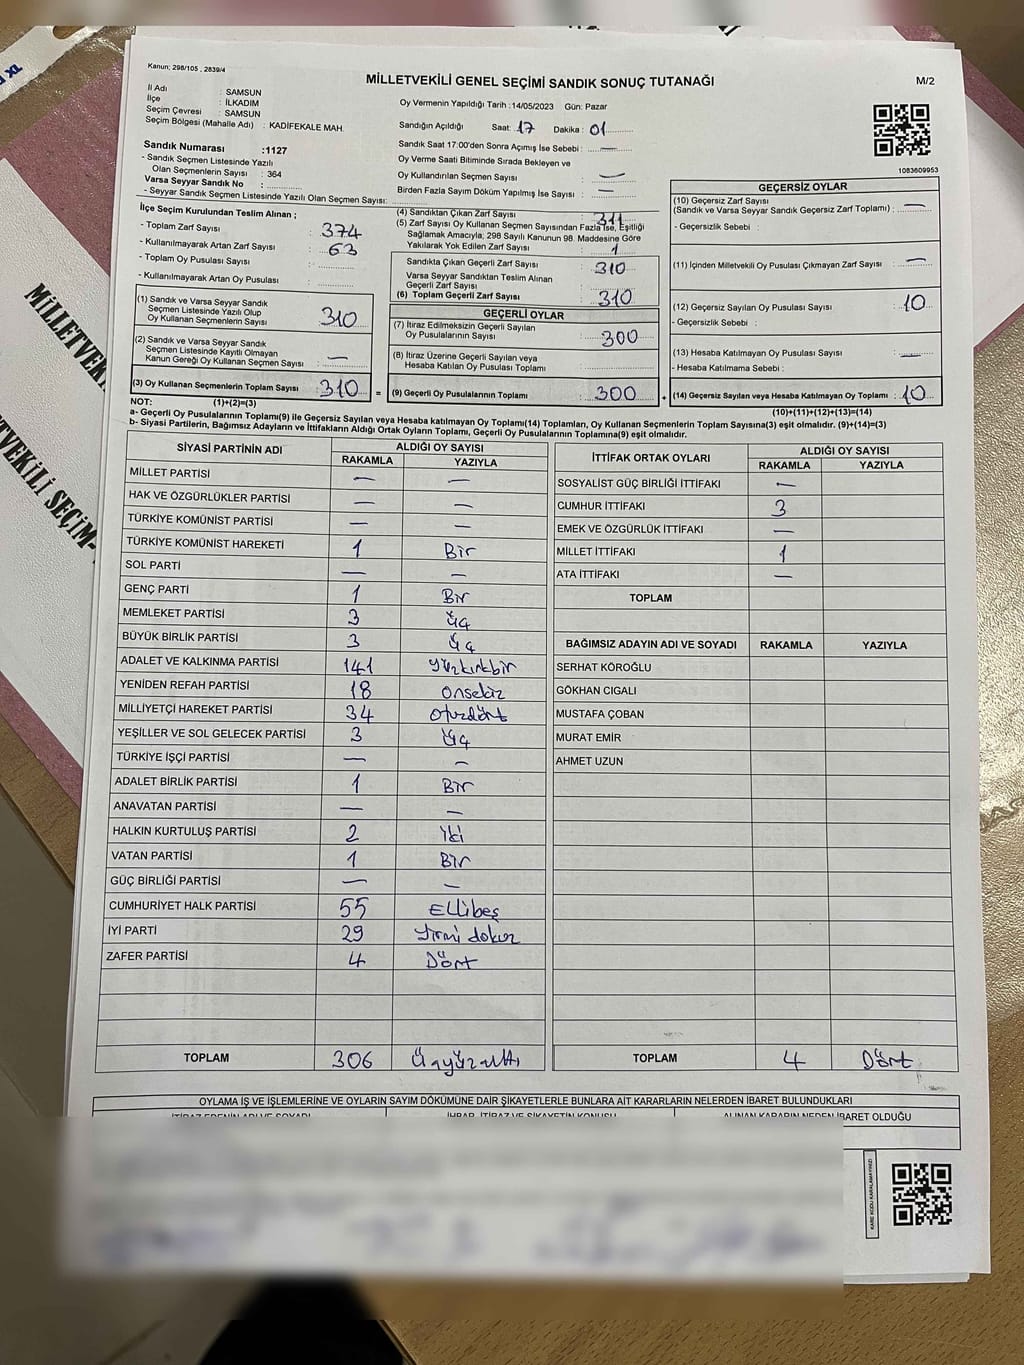 Kanun; 298/105 , 2839/4
MİLLETVEKİLİ GENEL SEÇİMİ SANDIK SONUÇ TUTANAĞI
M/2
İl Adı : SAMSUN
İlçe : İLKADIM
Seçim Çevresi : SAMSUN
Seçim Bölgesi (Mahalle Adı) : KADİFEKALE MAH.
Oy Vermenin Yapıldığı Tarih :14/05/2023 Gün: Pazar
Sandığın Açıldığı Saat: 17 Dakika : 01
Sandık Saat 17:00'den Sonra Açımış İse Sebebi : —
Oy Verme Saati Bitiminde Sırada Bekleyen ve
Oy Kullandırılan Seçmen Sayısı : —
Birden Fazla Sayım Döküm Yapılmış İse Sayısı : —
1083609953
Sandık Numarası :1127
- Sandık Seçmen Listesinde Yazılı
Olan Seçmenlerin Sayısı : 364
Varsa Seyyar Sandık No :
- Seyyar Sandık Seçmen Listesinde Yazılı Olan Seçmen Sayısı:
İlçe Seçim Kurulundan Teslim Alınan ;
- Toplam Zarf Sayısı : 374
- Kullanılmayarak Artan Zarf Sayısı : 63
- Toplam Oy Pusulası Sayısı :
- Kullanılmayarak Artan Oy Pusulası :
(1) Sandık ve Varsa Seyyar Sandık
Seçmen Listesinde Yazılı Olup
Oy Kullanan Seçmenlerin Sayısı : 310
(2) Sandık ve Varsa Seyyar Sandık
Seçmen Listesinde Kayıtlı Olmayan
Kanun Gereği Oy Kullanan Seçmen Sayısı : —
(3) Oy Kullanan Seçmenlerin Toplam Sayısı : 310 =
(4) Sandıktan Çıkan Zarf Sayısı : 311
(5) Zarf Sayısı Oy Kullanan Seçmen Sayısından Fazla İse, Eşitliği
Sağlamak Amacıyla; 298 Sayılı Kanunun 98. Maddesine Göre
Yakılarak Yok Edilen Zarf Sayısı : 1
Sandıkta Çıkan Geçerli Zarf Sayısı : 310
Varsa Seyyar Sandıktan Teslim Alınan
Geçerli Zarf Sayısı :
(6) Toplam Geçerli Zarf Sayısı : 310
GEÇERLİ OYLAR
(7) İtiraz Edilmeksizin Geçerli Sayılan
Oy Pusulalarının Sayısı : 300
(8) İtiraz Üzerine Geçerli Sayılan veya
Hesaba Katılan Oy Pusulası Toplamı :
(9) Geçerli Oy Pusulalarının Toplamı : 300 +
GEÇERSİZ OYLAR
(10) Geçersiz Zarf Sayısı
(Sandık ve Varsa Seyyar Sandık Geçersiz Zarf Toplamı) : —
- Geçersizlik Sebebi :
(11) İçinden Milletvekili Oy Pusulası Çıkmayan Zarf Sayısı : —
(12) Geçersiz Sayılan Oy Pusulası Sayısı : 10
- Geçersizlik Sebebi :
(13) Hesaba Katılmayan Oy Pusulası Sayısı : —
- Hesaba Katılmama Sebebi :
(14) Geçersiz Sayılan veya Hesaba Katılmayan Oy Toplamı : 10
NOT: (1)+(2)=(3)
(10)+(11)+(12)+(13)=(14)
a- Geçerli Oy Pusulalarının Toplamı(9) ile Geçersiz Sayılan veya Hesaba katılmayan Oy Toplamı(14) Toplamları, Oy Kullanan Seçmenlerin Toplam Sayısına(3) eşit olmalıdır. (9)+(14)=(3)
b- Siyasi Partilerin, Bağımsız Adayların ve İttifakların Aldığı Ortak Oyların Toplamı, Geçerli Oy Pusulalarının Toplamına(9) eşit olmalıdır.
SİYASİ PARTİNİN ADI ALDIĞI OY SAYISI
RAKAMLA YAZIYLA
MİLLET PARTİSİ — —
HAK VE ÖZGÜRLÜKLER PARTİSİ — —
TÜRKİYE KOMÜNİST PARTİSİ — —
TÜRKİYE KOMÜNİST HAREKETİ 1 Bir
SOL PARTİ — —
GENÇ PARTİ 1 Bir
MEMLEKET PARTİSİ 3 Üç
BÜYÜK BİRLİK PARTİSİ 3 Üç
ADALET VE KALKINMA PARTİSİ 141 Yüzkırkbir
YENİDEN REFAH PARTİSİ 18 Onsekiz
MİLLİYETÇİ HAREKET PARTİSİ 34 Otuzdört
YEŞİLLER VE SOL GELECEK PARTİSİ 3 Üç
TÜRKİYE İŞÇİ PARTİSİ — —
ADALET BİRLİK PARTİSİ 1 Bir
ANAVATAN PARTİSİ — —
HALKIN KURTULUŞ PARTİSİ 2 İki
VATAN PARTİSİ 1 Bir
GÜÇ BİRLİĞİ PARTİSİ — —
CUMHURİYET HALK PARTİSİ 55 Ellibeş
İYİ PARTİ 29 Yirmi dokuz
ZAFER PARTİSİ 4 Dört
TOPLAM 306 Üçyüzaltı
İTTİFAK ORTAK OYLARI ALDIĞI OY SAYISI
RAKAMLA YAZIYLA
SOSYALİST GÜÇ BİRLİĞİ İTTİFAKI —
CUMHUR İTTİFAKI 3
EMEK VE ÖZGÜRLÜK İTTİFAKI —
MİLLET İTTİFAKI 1
ATA İTTİFAKI —
TOPLAM
BAĞIMSIZ ADAYIN ADI VE SOYADI RAKAMLA YAZIYLA
SERHAT KÖROĞLU
GÖKHAN CIGALI
MUSTAFA ÇOBAN
MURAT EMİR
AHMET UZUN
TOPLAM 4 Dört
OYLAMA İŞ VE İŞLEMLERİNE VE OYLARIN SAYIM DÖKÜMÜNE DAİR ŞİKAYETLERLE BUNLARA AİT KARARLARIN NELERDEN İBARET BULUNDUKLARI
İTİRAZ EDENİN ADI VE SOYADI İHBAR, İTİRAZ VE ŞİKAYETİN KONUSU ALINAN KARARIN NEDEN İBARET OLDUĞU
MİLLETVEKİLİ SEÇİM